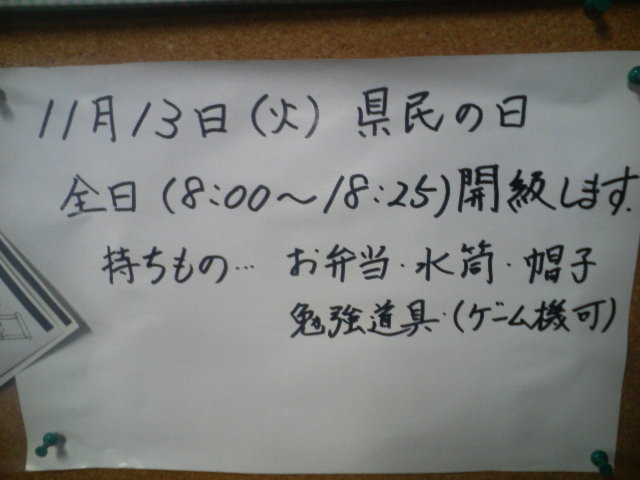 11月13日(火) 県民の日
全日(8:00〜18:25)開級します.
持ちもの… お弁当・水筒・帽子
勉強道具・(ゲーム機可)